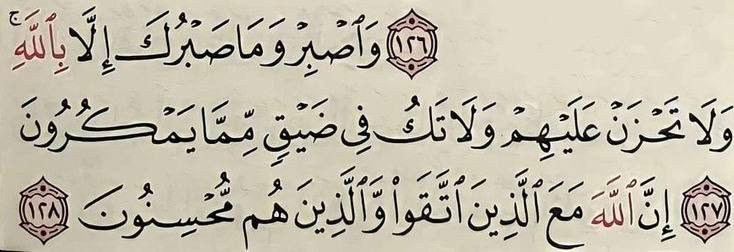 ﴿١٢٦﴾ وَٱصۡبِرۡ وَمَا صَبۡرُكَ إِلَّا بِٱللَّهِۚ
وَلَا تَحۡزَنۡ عَلَيۡهِمۡ وَلَا تَكُ فِي ضَيۡقٖ مِّمَّا يَمۡكُرُونَ
﴿١٢٧﴾ إِنَّ ٱللَّهَ مَعَ ٱلَّذِينَ ٱتَّقَواْ وَّٱلَّذِينَ هُم مُّحۡسِنُونَ ﴿١٢٨﴾